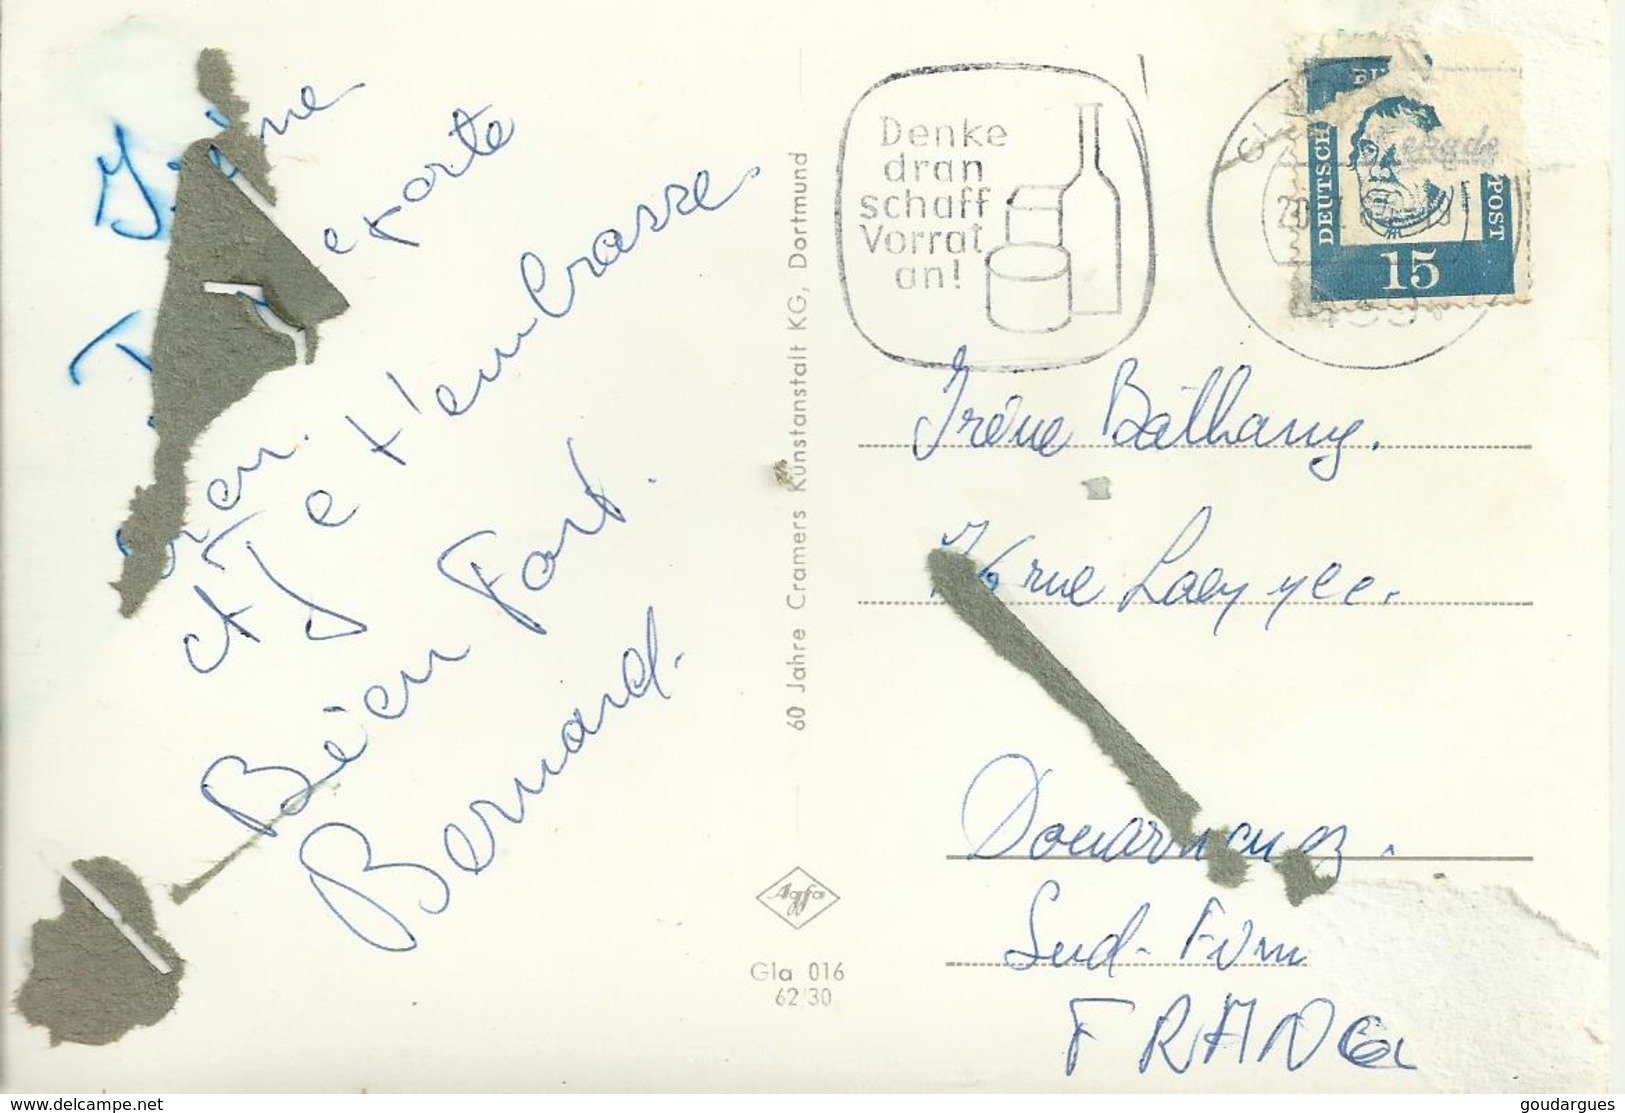 Irène
T
e porte
bien.
et Je t'embrasse
Bien Fort.
Bernard.
60 Jahre Cramers Kunstanstalt KG, Dortmund
Agfa
Gla 016
62/30
Denke
dran
schaff
Vorrat
an!
DEUTSCHE
POST
15
Irène Bathany.
rue Laennec.
Douarnenez.
Sud-Finis
FRANCE
www.delcampe.net
goudargues